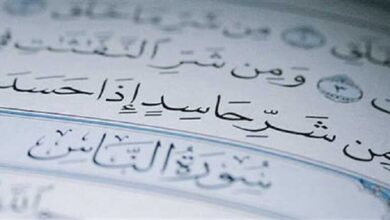 مِن شَرِّ مَا خَلَقَ
٣ وَمِن شَرِّ النَّفَّٰثَٰتِ فِي
مِن شَرِّ حَاسِدٍ إِذَا حَسَدَ
سُورَةُ النَّاسِ